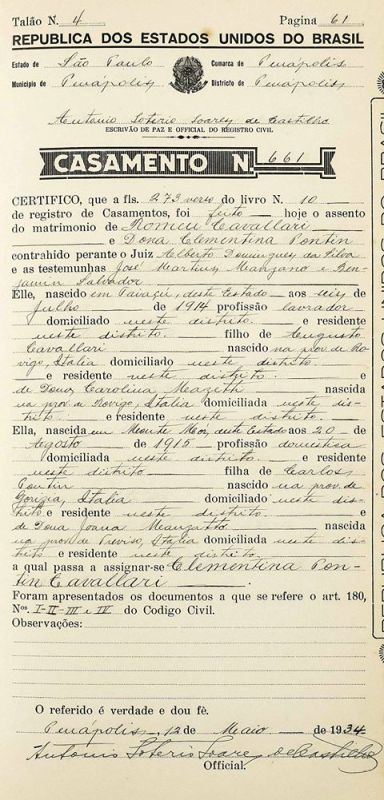 Talão N. 4 Pagina 61
REPUBLICA DOS ESTADOS UNIDOS DO BRASIL
Estado de São Paulo Comarca de Penápolis
Municipio de Penápolis Districto de Penápolis
Antonio Soterio Soares de Castilho
ESCRIVÃO DE PAZ E OFFICIAL DO REGISTRO CIVIL
CASAMENTO N. 661
CERTIFICO, que a fls. 273 verso do livro N. 10
de registro de Casamentos, foi feito hoje o assento
do matrimonio de Romeu Cavallari
e Dona Clementina Pontin
contrahido perante o Juiz Alberto Domingues da Silva
e as testemunhas José Martins Manzano e Ben-
jamin Salvador
Elle, nascido em deste Estado aos seis de
Julho de 1914 profissão lavrador
domiciliado neste districto. e residente
neste districto. filho de Augusto
Cavallari nascido na prov. de Ro-
vigo, Italia domiciliado neste districto.
e residente neste districto. e
de Dona Carolina nascida
na prov. de Rovigo, Italia domiciliada neste dis-
tricto e residente neste districto.
Ella, nascida em Monte Mór, deste Estado aos 20 de
Agosto de 1915 profissão domestica
domiciliada neste districto. e residente
neste districto filha de Carlos
Pontin nascido na prov. de
Gorizia, Italia domiciliado neste dis-
tricto e residente neste districto. e
de Dona Joana nascida
na prov. de Treviso, Italia domiciliada neste dis-
tricto e residente neste districto.
a qual passa a assignar-se Clementina Pon-
tin Cavallari
Foram apresentados os documentos a que se refere o art. 180,
Nos. I-II-III e IV do Codigo Civil.
Observações:
O referido é verdade e dou fè.
Penápolis, 12 de Maio de 1934
Antonio Soterio Soares de Castilho
Official.